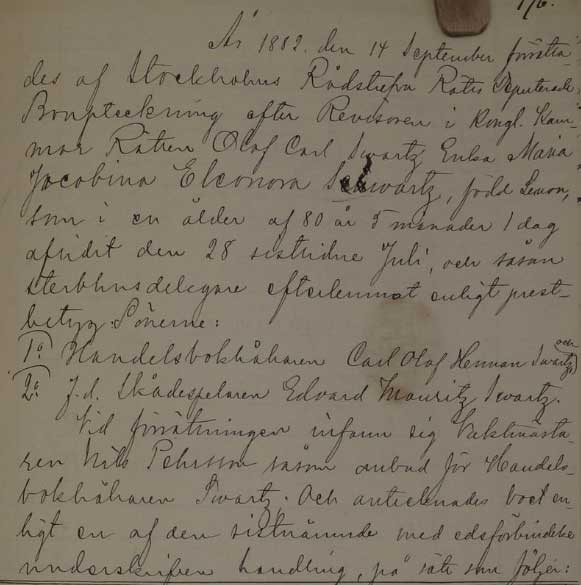 176.
År 1882. den 14 September förrätta-
des af Stockholms Rådstufvu Rätts Deputerade
Bouppteckning efter Revisoren i Kongl. Kam-
mar Rätten Olof Carl Swartz Enka Maria
Jacobina Eleonora Schwartz, född Zenon,
som i en ålder af 80 år 5 månader 1 dag
aflidit den 28 sistlidne Juli, och såsom
sterbhusdelegare efterlemnat enligt prest-
betyg Sönerne:
1o Handelsbokhållaren Carl Olof Herman Swartz och
2o f.d. Skådespelaren Edvard Mauritz Swartz.
Vid förrättningen infann sig Vaktmästa-
ren Nils Pehrsson såsom ombud för Handels-
bokhållaren Swartz. Och antecknades boet en-
ligt en af den sistnämnde med edsförbindelse
underskrifven handling, på sätt som följer: